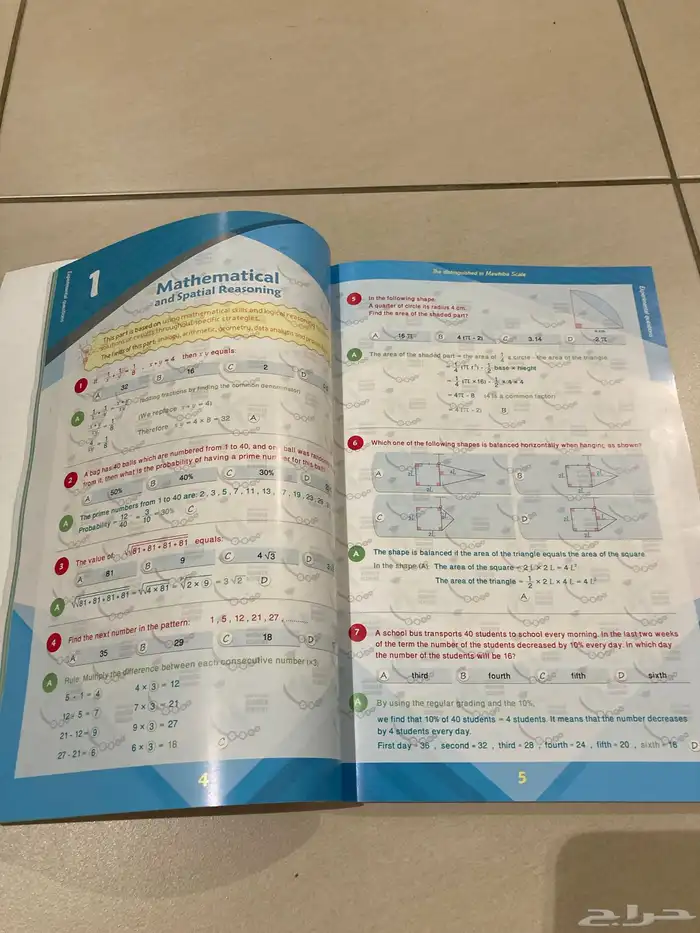 Experimental Questions
1
Mathematical
and Spatial Reasoning
This part is based on using mathematical skills and logical reasoning
solutions or results through specific strategies.
The fields of this part: analogy, arithmetic, geometry, data analysis and
1 If 1/x + 1/y = 1/8 , x + y = 4 then x y equals:
A 32 B 16 C 2 D
A 1/x + 1/y = 1/8 (adding fractions by finding the common denominator)
x+y/xy = 1/8 (We replace x + y = 4)
4/xy = 1/8 Therefore x y = 4 × 8 = 32 A
2 A bag has 40 balls which are numbered from 1 to 40, and one ball was
from it, then what is the probability of having a prime number for this ball
A 50% B 40% C 30% D
A The prime numbers from 1 to 40 are: 2 , 3 , 5 , 7 , 11 , 13 , 17 , 19 , 23 , 29 ,
Probability = 12/40 = 3/10 = 30% C
3 The value of √√81 + 81 + 81 + 81 equals:
A 81 B 9 C 4 √3 D
A √√81 + 81 + 81 + 81 = √√4 × 81 = √2 × 9 = 3 √2 D
4 Find the next number in the pattern: 1 , 5 , 12 , 21 , 27 ,
A 35 B 29 C 18 D
A Rule: Multiply the difference between each consecutive number (×3)
5 - 1 = 4 4 × 3 = 12
12 - 5 = 7 7 × 3 = 21
21 - 12 = 9 9 × 3 = 27
27 - 21 = 6 6 × 3 = 18 C
4
The distinguished in Mawhiba Scale
Experimental Questions
5 In the following shape:
A quarter of circle its radius 4 cm.
Find the area of the shaded part?
4 cm
A 16 π B 4 (π - 2) C 3.14 D 2 π
A The area of the shaded part = the area of 1/4 a circle - the area of the triangle
= 1/4 (π r²) - 1/2 base × hieght
= 1/4 (π × 16) - 1/2 × 4 × 4
= 4π - 8 (4 is a common factor)
= 4 (π - 2) B
6 Which one of the following shapes is balanced horizontally when hanging as shown?
A B
C D
A The shape is balanced if the area of the triangle equals the area of the square.
In the shape (A): The area of the square = 2 L × 2 L = 4 L²
The area of the triangle = 1/2 × 2 L × 4 L = 4 L²
A
7 A school bus transports 40 students to school every morning. In the last two weeks
of the term the number of the students decreased by 10% every day. In which day
the number of the students will be 16?
A third B fourth C fifth D sixth
A By using the regular grading and the 10%,
we find that 10% of 40 students = 4 students. It means that the number decreases
by 4 students every day.
First day = 36 , second = 32 , third = 28 , fourth = 24 , fifth = 20 , sixth = 16 D
5
حراج